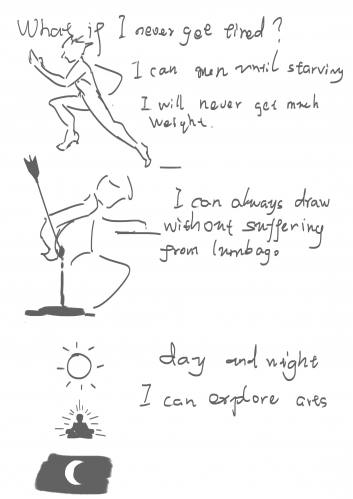 What if I never get tired?
I can run until starving
I will never get much
weight.
I can always draw
without suffering
from lumbago
day and night
I can explore arts